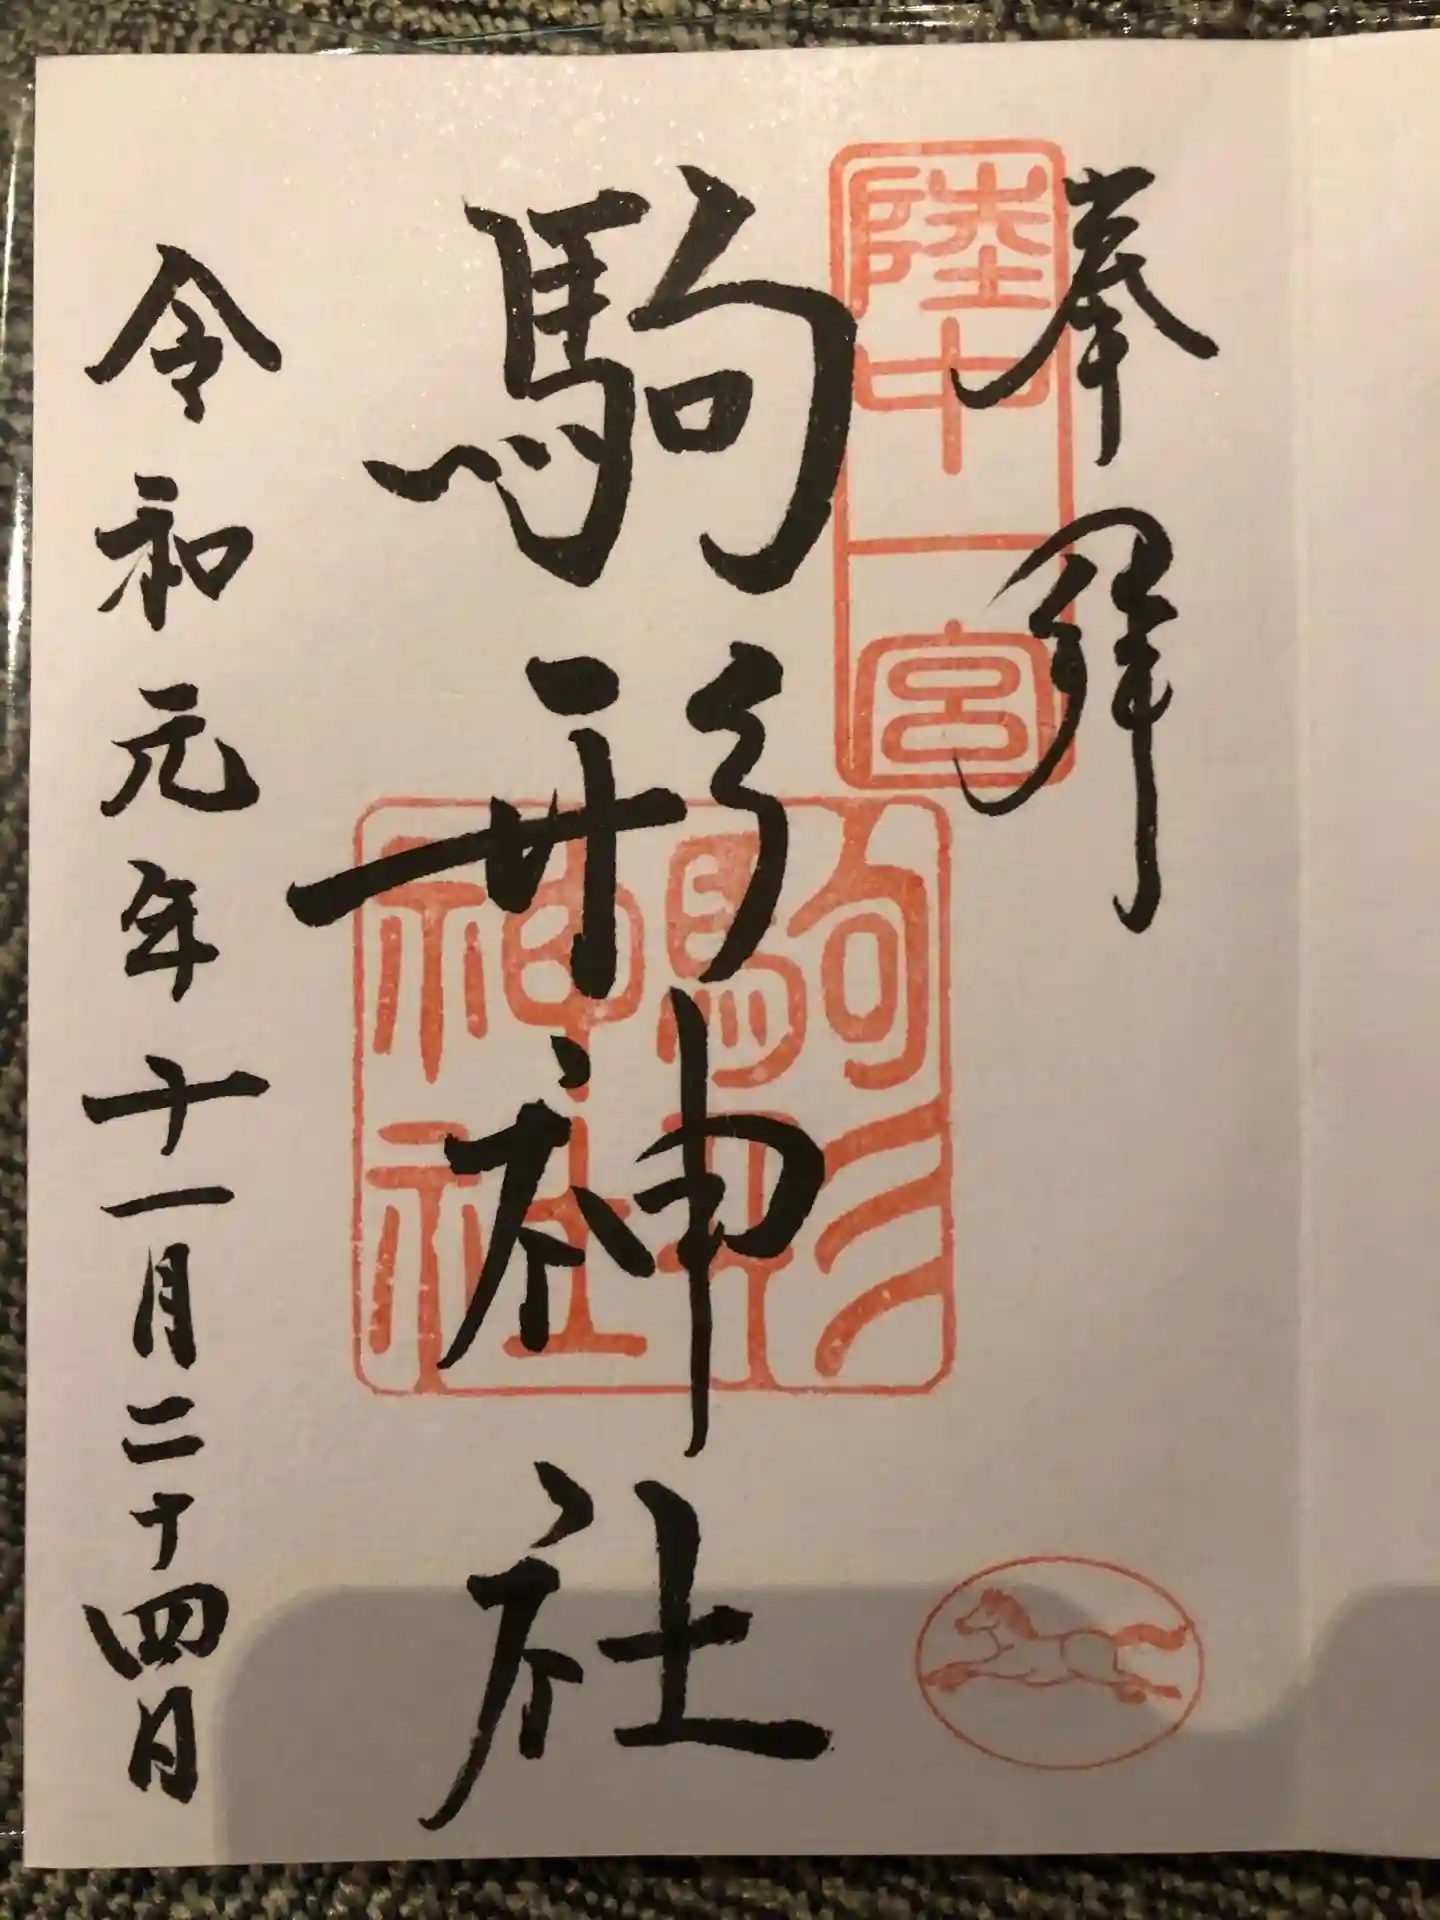 奉拝
陸中一宮
駒形神社
駒形
神社
令和元年十一月二十四日